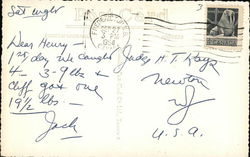 Sat night
Dear Henry —
1st day we caught
4 3-9 lbs &
Cliff got one
19½ lbs —
Jack
Judge H. T. Kays
Newton
NJ
U.S.A.